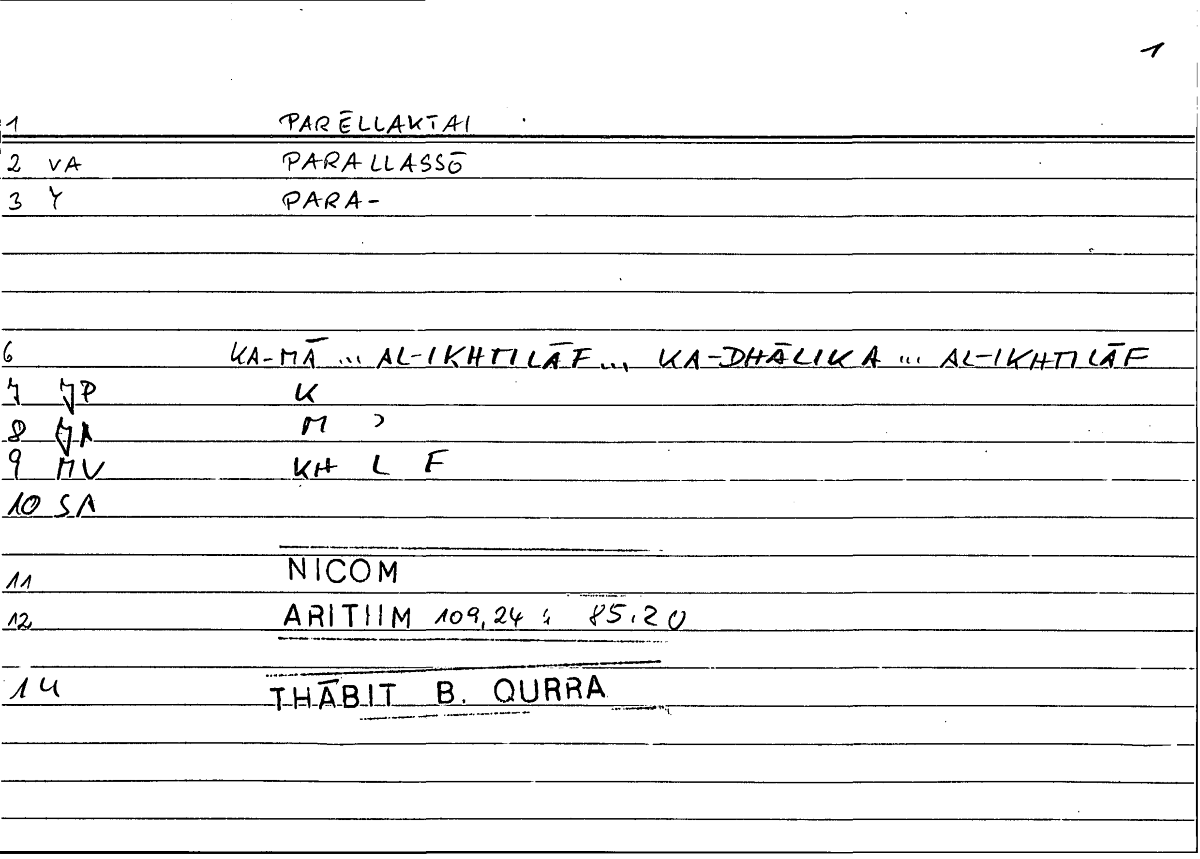 1
1 PARĒLLAKTAI
2 VA PARALLASSŌ
3 Y PARA-
6 KA-MĀ ... AL-IKHTILĀF ... KA-DHĀLIKA ... AL-IKHTILĀF
7 JP K
8 JA M ʾ
9 MV KH L F
10 SA
11 NICOM
12 ARITHM 109,24 : 85.20
14 THĀBIT B. QURRA